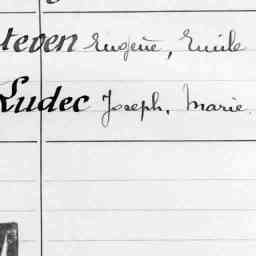 teven Eugène, Emile
Ludec Joseph, Marie